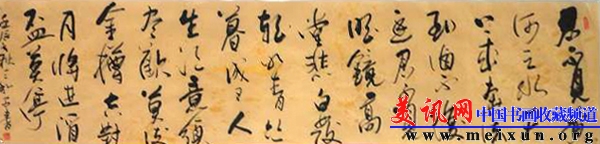 君不見黃
河之水天
上来奔流
到海不復
回君不見
明鏡高
堂悲白髮
朝如青丝
暮成雪人
生得意須
盡歡莫使
金樽空對
月將進酒
盃莫停
美讯网 中国书画收藏频道
www.meixun.org